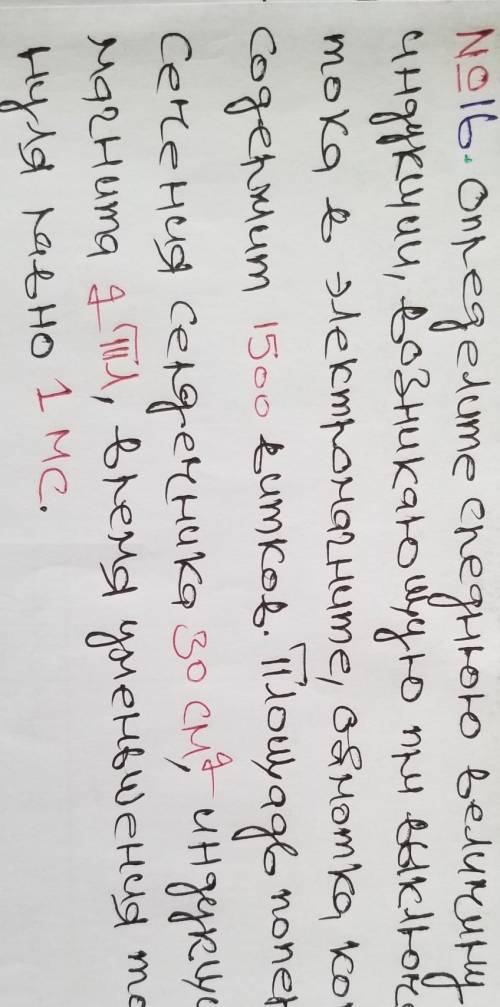 №16. Определите среднюю величину
индукции, возникающую при выключ
тока в электромагните, обмотка ко
содержит 1500 витков. Площадь попе
сечения сердечника 30 см², индукц
магнита 2 Тл, время уменьшения то
нуля равно 1 мс.